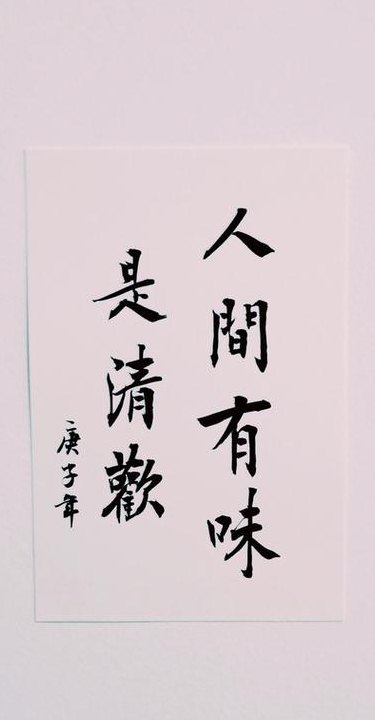 人間有味
是清歡
庚子年